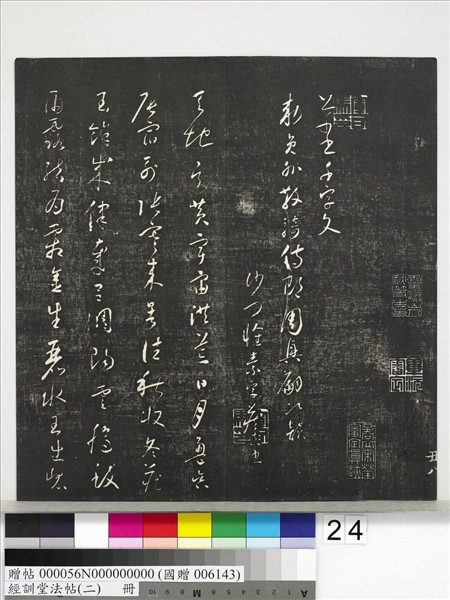 書千字文
敕員外散騎侍郎周興嗣次韻
沙門懷素字藏真書
天地玄黃宇宙洪荒日月盈昃
辰宿列張寒來暑往秋收冬藏
閏餘成歲律召調陽雲騰致
雨露結為霜金生麗水玉出崑
24
贈帖 000056N000000000 (國贈 006143)
經訓堂法帖(二) 冊